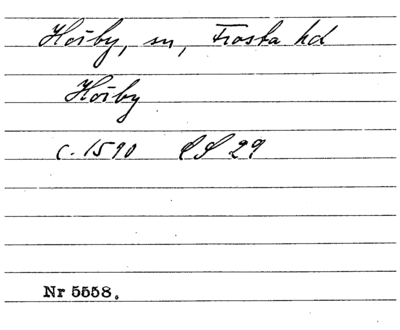 Hörby, sn, Frosta hd
Hörby
c. 1590 LS 29
Nr 5558.